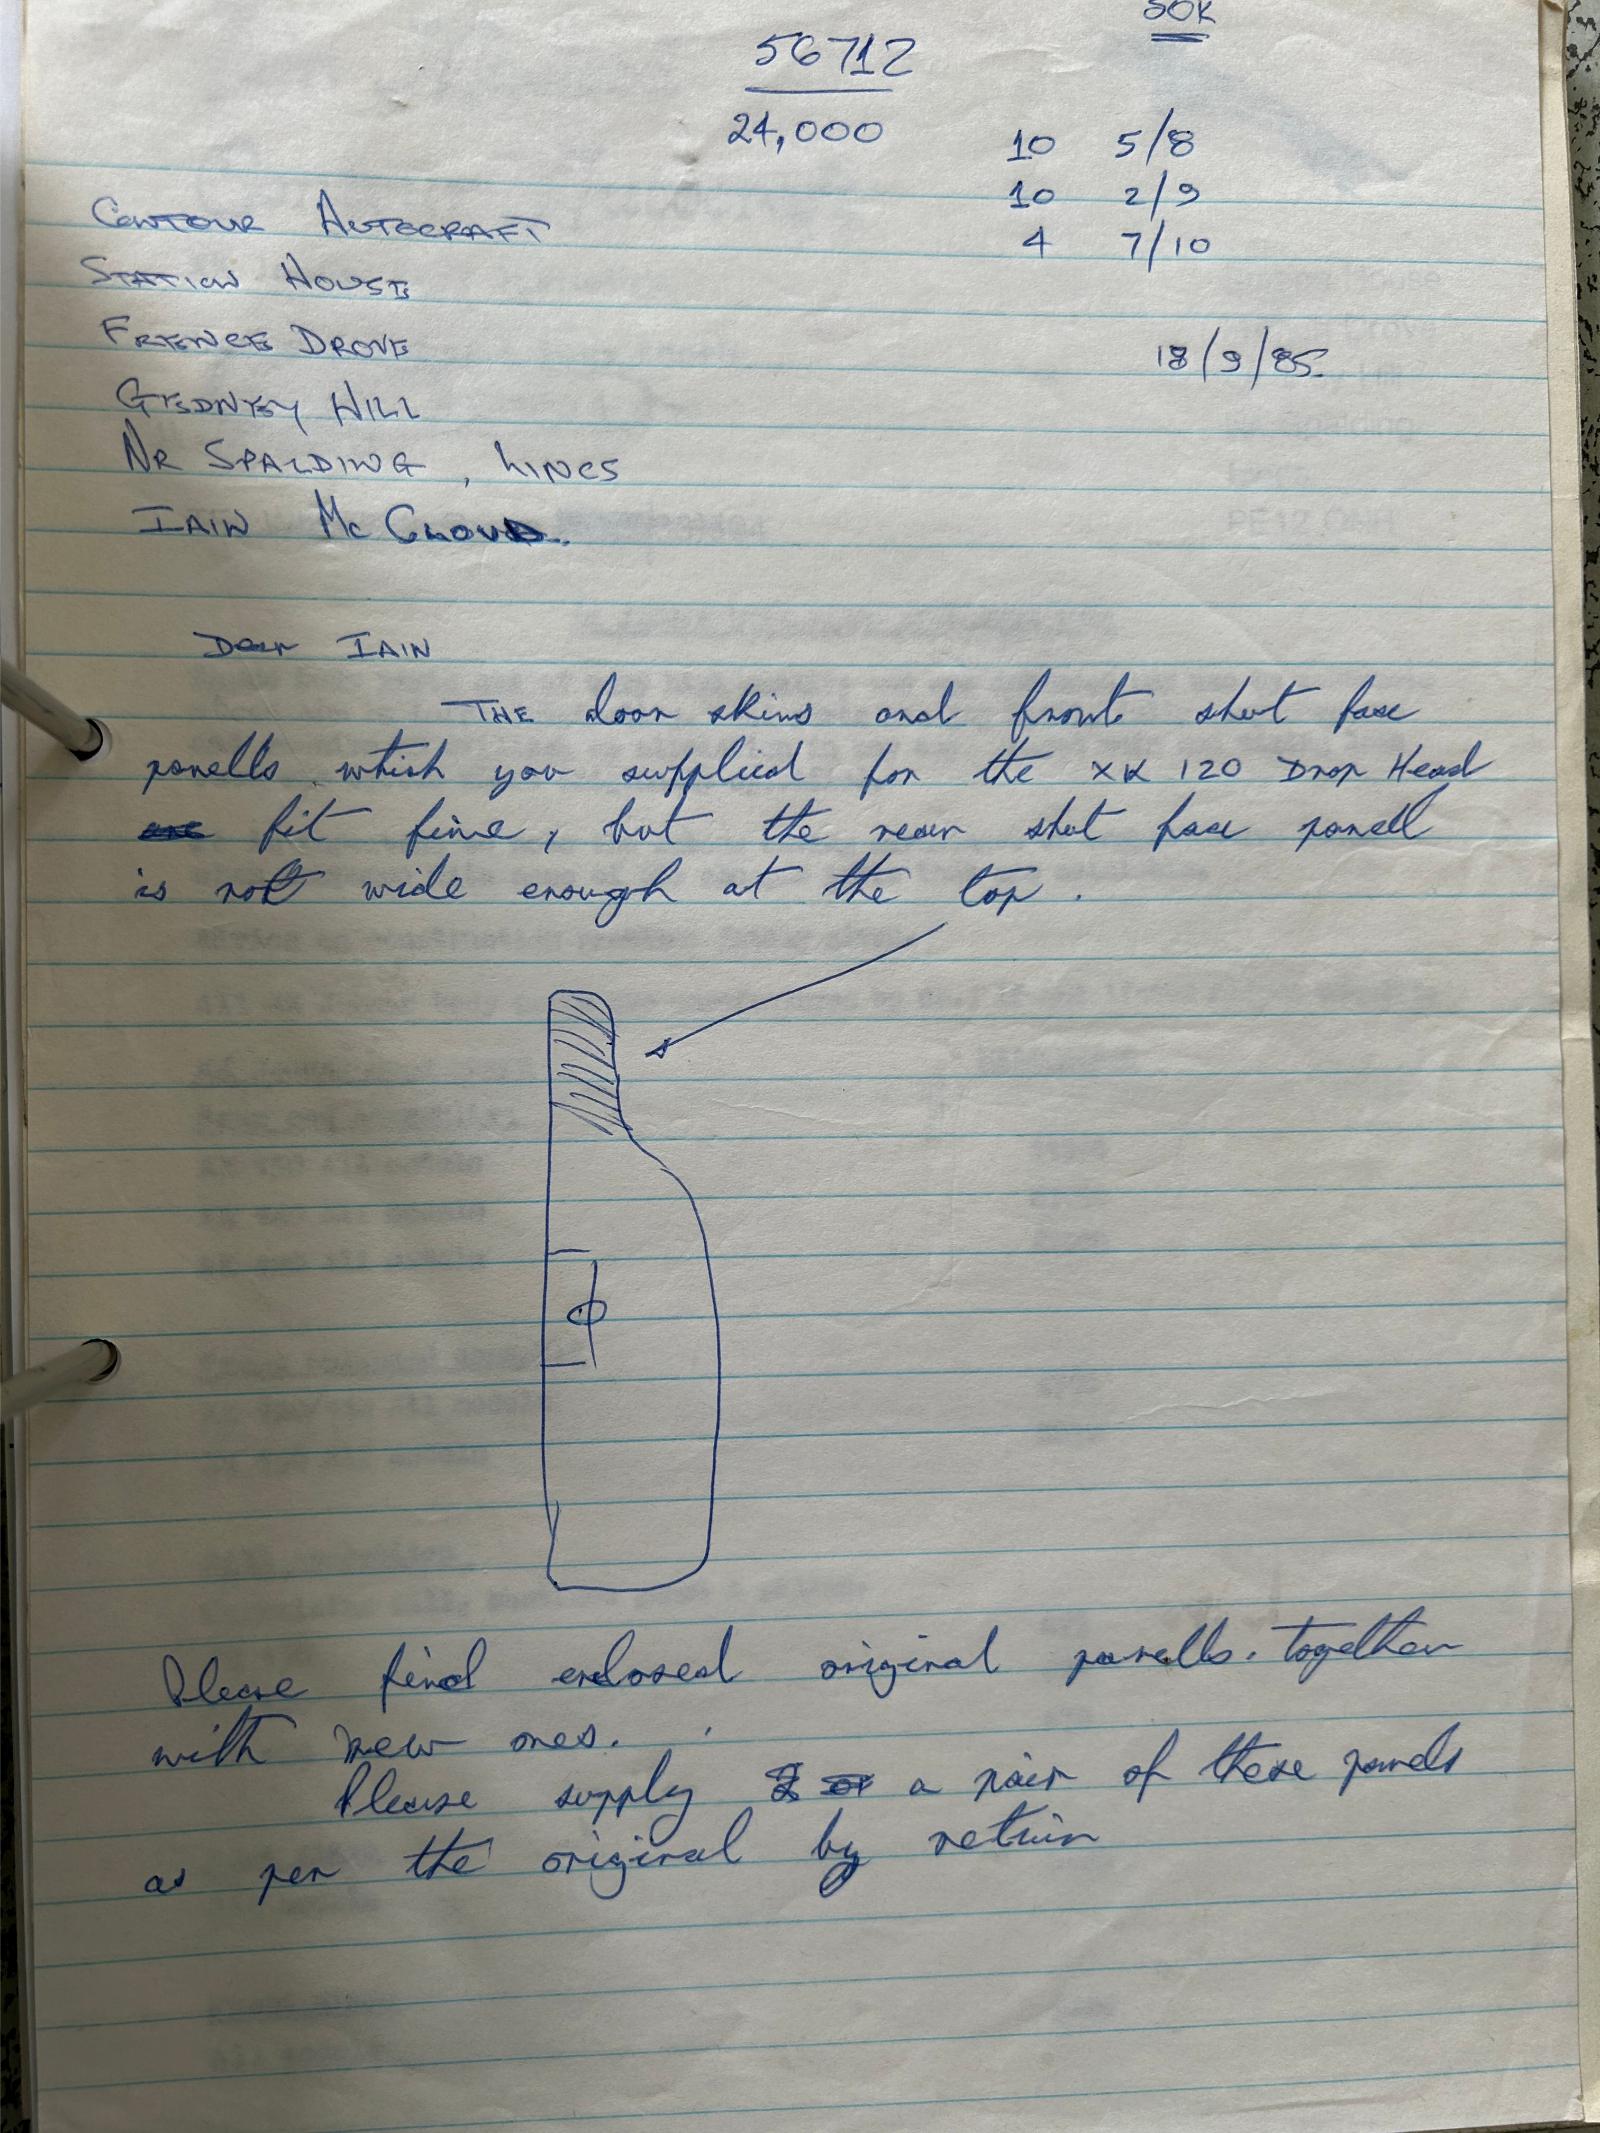 50K
56712
24,000
10 5/8
10 2/9
4 7/10
CONTOUR AUTOCRAFT
STATION HOUSE
FRENCE DROVE
18/9/85.
GEDNEY HILL
NR SPALDING, LINCS
IAIN Mc CLOUD.
Dear IAIN
THE door skins and front shut face
panells which you supplied for the XK 120 Drop Head
are fit fine, but the rear shut face panell
is not wide enough at the top.
Please find enclosed original panells. together
with new ones.
Please supply 2 of a pair of these panels
as per the original by return